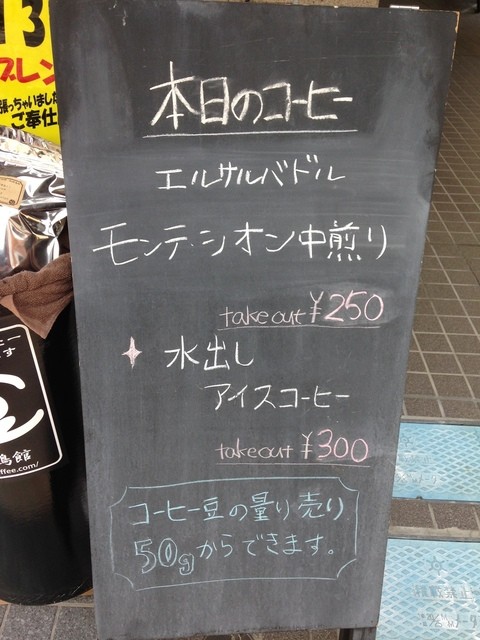 本日のコーヒー
エルサルバドル
モンテ・シオン中煎り
take out ¥250
水出し
アイスコーヒー
take out ¥300
コーヒー豆の量り売り
50gからできます。
ブレン
張っちゃいました
ご奉仕
ffee.com/